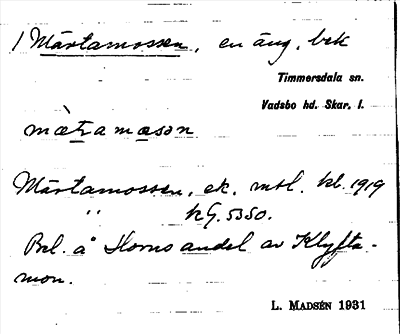 1 Mårtamossen, en äng, bek
Timmersdala sn.
Vadsbo hd. Skar. l.
mæʈamæsən
Mårtamossen, ek. mtl. kl. 1919
" kG. 5350.
Bel. å Horns andel av Klyfta-
mon.
L. MADSÉN 1931